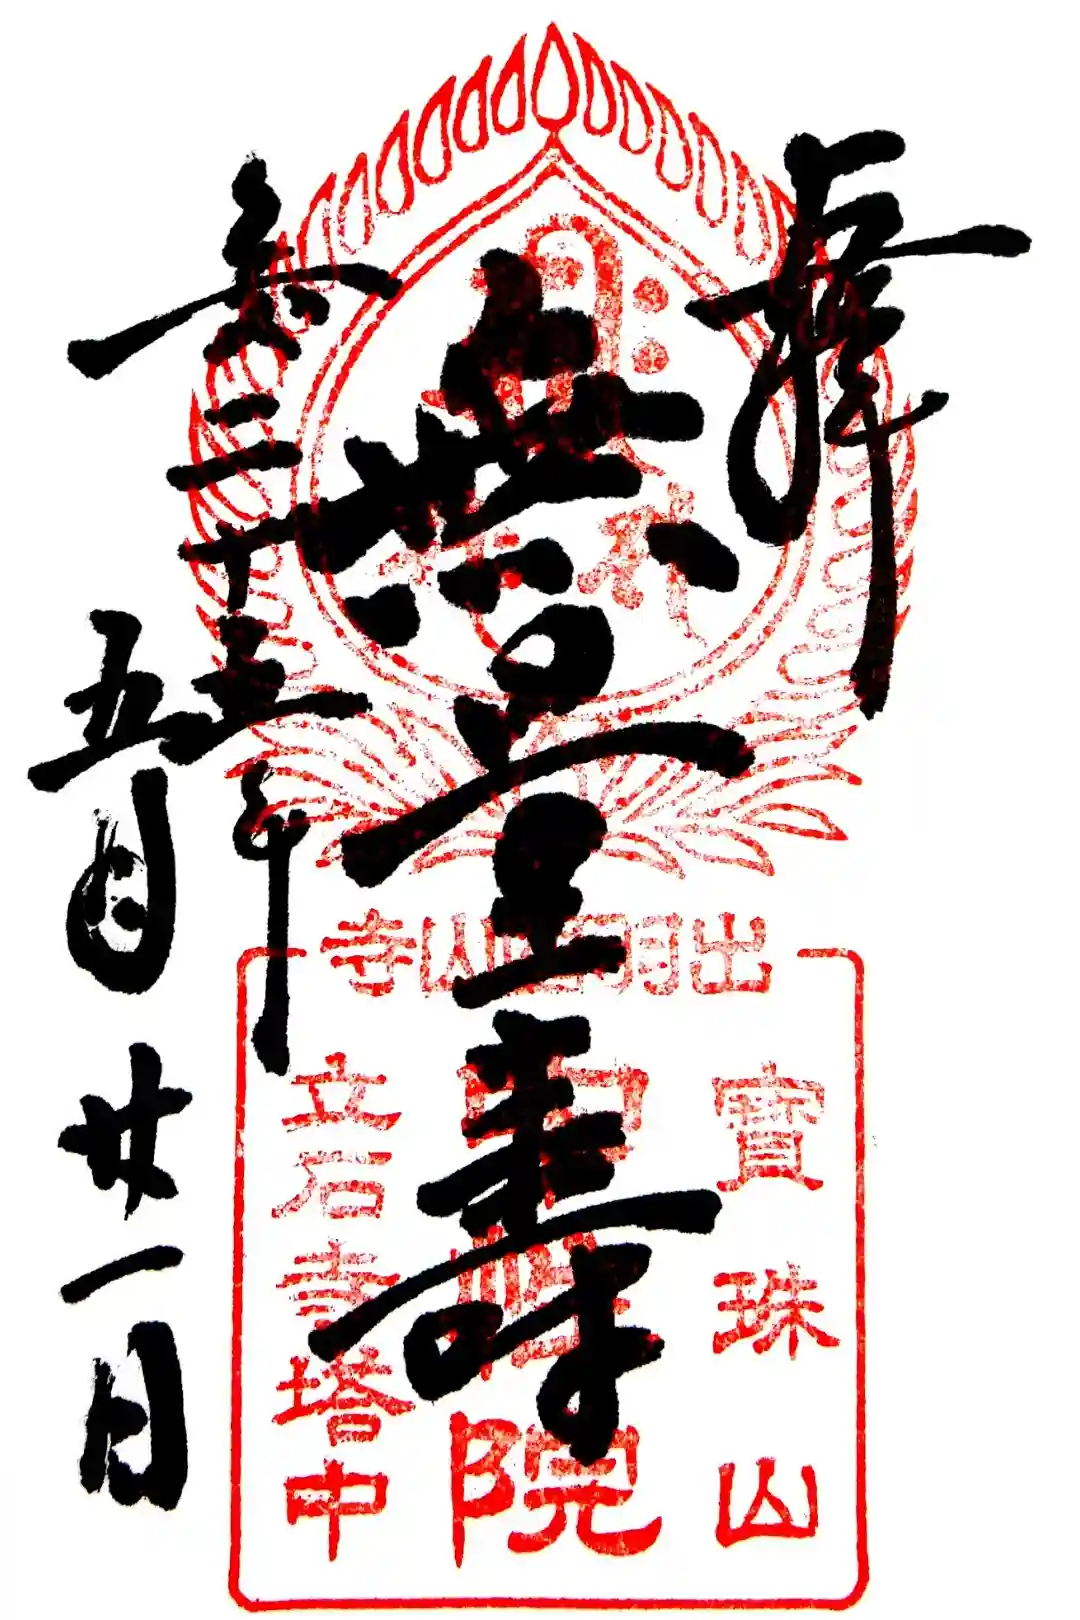 奉拝
無量寿
二十五年
五月廿一日
出羽国山寺
寶珠山
中性院
立石寺塔中